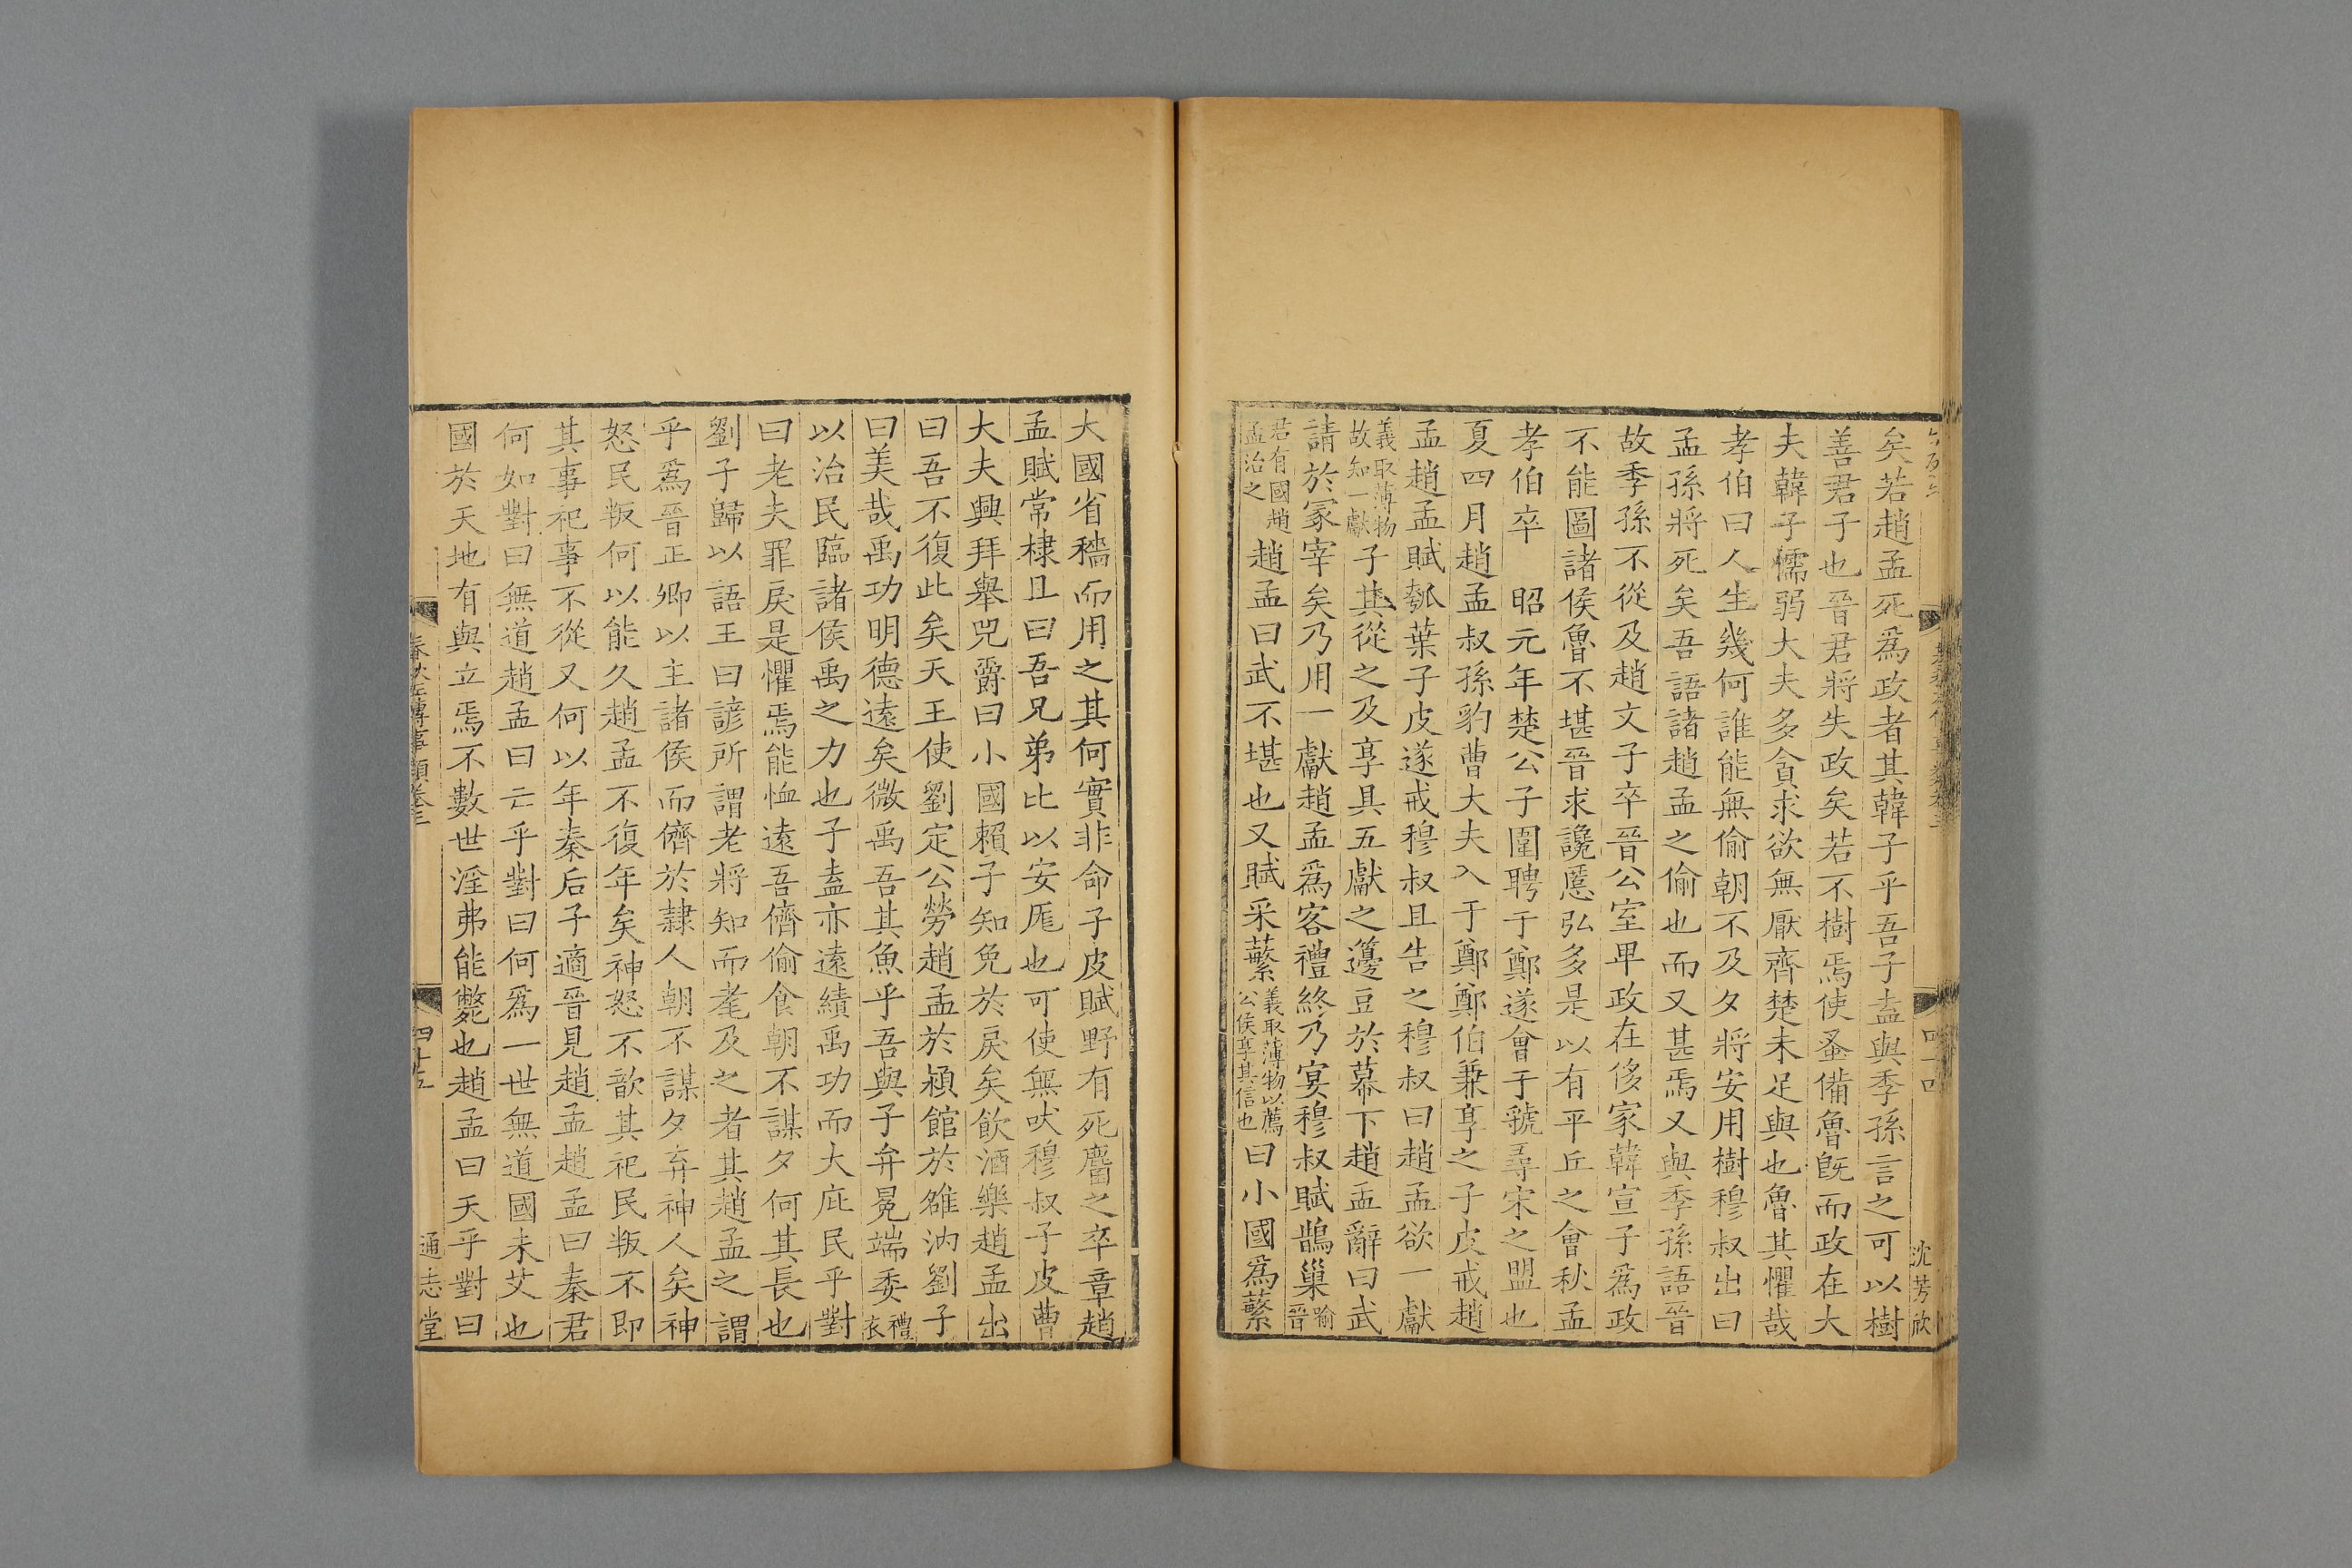 矣若趙孟死為政者其韓子乎吾子盍與季孫言之可以樹
善君子也晉君將失政矣若不樹焉使蚤備魯旣而政在大
夫韓子懦弱大夫多貪求欲無厭齊楚未足與也魯其懼哉
孝伯曰人生幾何誰能無偷朝不及夕將安用樹穆叔出曰
孟孫將死矣吾語諸趙孟之偷也而又甚焉又與季孫語晉
故季孫不從及趙文子卒晉公室卑政在侈家韓宣子為政
不能圖諸侯魯不堪晉求讒慝弘多是以有平丘之會秋孟
孝伯卒　昭元年楚公子圍聘于鄭遂會于虢尋宋之盟也
夏四月趙孟叔孫豹曹大夫入于鄭鄭伯兼享之子皮戒趙
孟趙孟賦瓠葉子皮遂戒穆叔且告之穆叔曰趙孟欲一獻
義取薄物故知一獻子其從之及享具五獻之籩豆於幕下趙孟辭曰武
請於冢宰矣乃用一獻趙孟為客禮終乃宴穆叔賦鵲巢喻晉
若有國趙孟治之趙孟曰武不堪也又賦采蘩義取薄物以薦公侯享其信也曰小國為蘩
沈芳欣
大國省穡而用之其何實非命子皮賦野有死麕之卒章趙
孟賦常棣且曰吾兄弟比以安尨也可使無吠穆叔子皮曹
大夫興拜舉兕爵曰小國賴子知免於戾矣飲酒樂趙孟出
曰吾不復此矣天王使劉定公勞趙孟於潁館於雒汭劉子
曰美哉禹功明德遠矣微禹吾其魚乎吾與子弁冕端委禮衣
以治民臨諸侯禹之力也子盍亦遠績禹功而大庇民乎對
曰老夫罪戾是懼焉能恤遠吾儕偷食朝不謀夕何其長也
劉子歸以語王曰諺所謂老將知而耄及之者其趙孟之謂
乎為晉正卿以主諸侯而儕於隸人朝不謀夕弃神人矣神
怒民叛何以能久趙孟不復年矣神怒不歆其祀民叛不即
其事祀事不從又何以年秦后子適晉見趙孟趙孟曰秦君
何如對曰無道趙孟曰亡乎對曰何為一世無道國未艾也
國於天地有與立焉不數世淫弗能斃也趙孟曰天乎對曰
春秋左傳事類卷三
四十五
通志堂